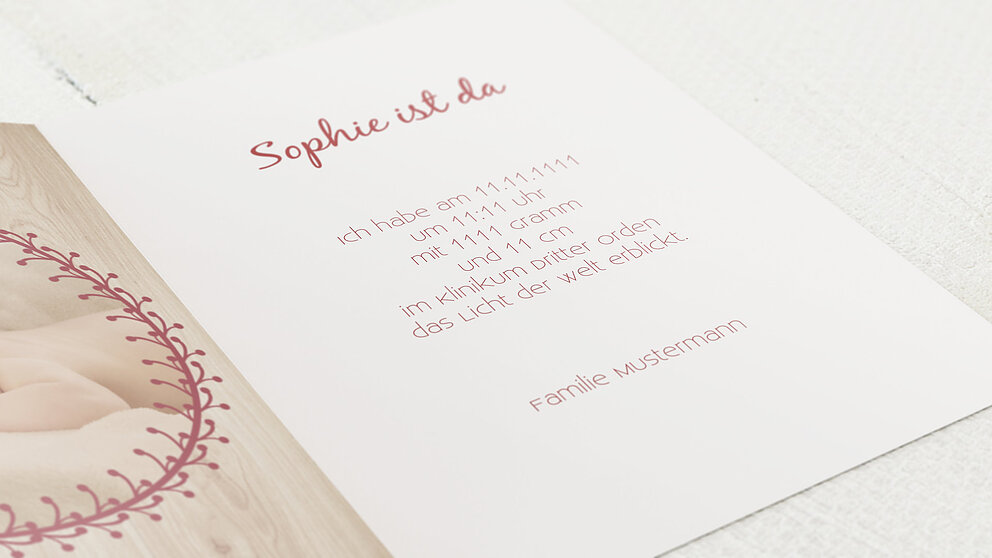 Sophie ist da
Ich habe am 11.11.1111
um 11:11 Uhr
mit 1111 Gramm
und 11 cm
im Klinikum Dritter Orden
das Licht der Welt erblickt.
Familie Mustermann